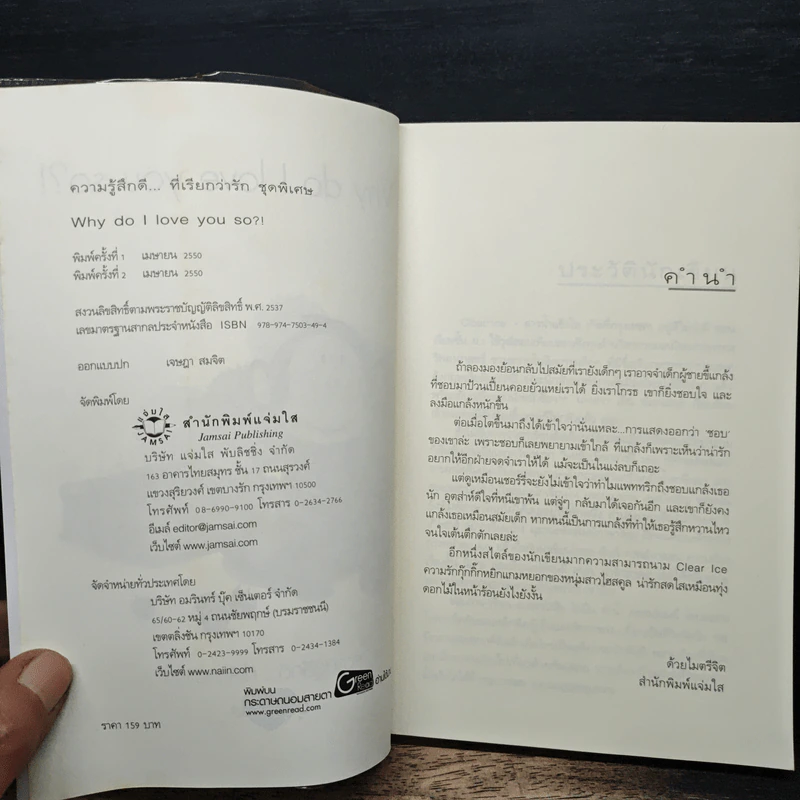 ความรู้สึกดี... ที่เรียกว่ารัก ชุดพิเศษ
Why do I love you so?!
พิมพ์ครั้งที่ 1 เมษายน 2550
พิมพ์ครั้งที่ 2 เมษายน 2550
สงวนลิขสิทธิ์ตามพระราชบัญญัติลิขสิทธิ์ พ.ศ. 2537
เลขมาตรฐานสากลประจำหนังสือ ISBN 978-974-7503-49-4
ออกแบบปก เจษฎา สมจิต
จัดพิมพ์โดย
แจ่มใส
JAMSAI
สำนักพิมพ์แจ่มใส
Jamsai Publishing
บริษัท แจ่มใส พับลิชชิ่ง จำกัด
163 อาคารไทยสมุทร ชั้น 17 ถนนสุรวงศ์
แขวงสุริยวงศ์ เขตบางรัก กรุงเทพฯ 10500
โทรศัพท์ 08-6990-9100 โทรสาร 0-2634-2766
อีเมล์ editor@jamsai.com
เว็บไซต์ www.jamsai.com
จัดจำหน่ายทั่วประเทศโดย
บริษัท อมรินทร์ บุ๊ค เซ็นเตอร์ จำกัด
65/60-62 หมู่ 4 ถนนชัยพฤกษ์ (บรมราชชนนี)
เขตตลิ่งชัน กรุงเทพฯ 10170
โทรศัพท์ 0-2423-9999 โทรสาร 0-2434-1384
เว็บไซต์ www.naiin.com
พิมพ์บน
กระดาษถนอมสายตา
www.greenread.com
Green Read
ราคา 159 บาท
คำนำ
ถ้าลองมองย้อนกลับไปสมัยที่เรายังเด็กๆ เราอาจจำเด็กผู้ชายขี้แกล้ง
ที่ชอบมาป้วนเปี้ยนคอยยั่วแหย่เราได้ ยิ่งเราโกรธ เขาก็ยิ่งชอบใจ และ
ลงมือแกล้งหนักขึ้น
ต่อเมื่อโตขึ้นมาถึงได้เข้าใจว่านั่นแหละ...การแสดงออกว่า 'ชอบ'
ของเขาล่ะ เพราะชอบก็เลยพยายามเข้าใกล้ ที่แกล้งก็เพราะเห็นว่าน่ารัก
อยากให้อีกฝ่ายจดจำเราให้ได้ แม้จะเป็นในแง่ลบก็เถอะ
แต่ดูเหมือนเชอร์รี่จะยังไม่เข้าใจว่าทำไมแพททริกถึงชอบแกล้งเธอ
นัก อุตส่าห์ดีใจที่หนีเขาพ้น แต่จู่ๆ กลับมาได้เจอกันอีก และเขาก็ยังคง
แกล้งเธอเหมือนสมัยเด็ก หากหนนี้เป็นการแกล้งที่ทำให้เธอรู้สึกหวานไหว
จนใจเต้นตึกตักเลยล่ะ
อีกหนึ่งสไตล์ของนักเขียนมากความสามารถนาม Clear Ice
ความรักกุ๊กกิ๊กหยิกแกมหยอกของหนุ่มสาวไฮสคูล น่ารักสดใสเหมือนทุ่ง
ดอกไม้ในหน้าร้อนยังไงยังงั้น
ด้วยไมตรีจิต
สำนักพิมพ์แจ่มใส